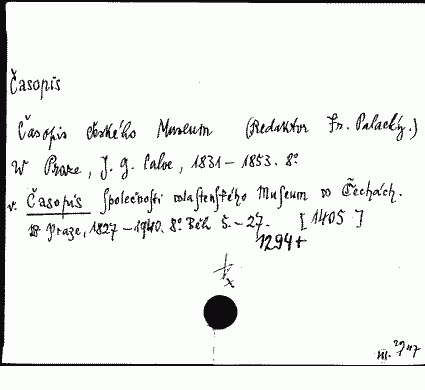 Časopis
Časopis českého Museum (Redaktor Fr. Palacký.)
W Praze, J. G. Calve, 1831–1853. 8°
v. Časopis společnosti wlastenského Museum w Čechách.
W Praze, 1827–1940. 8° Běh 5.–27. [1405]
1294+
III. 2947